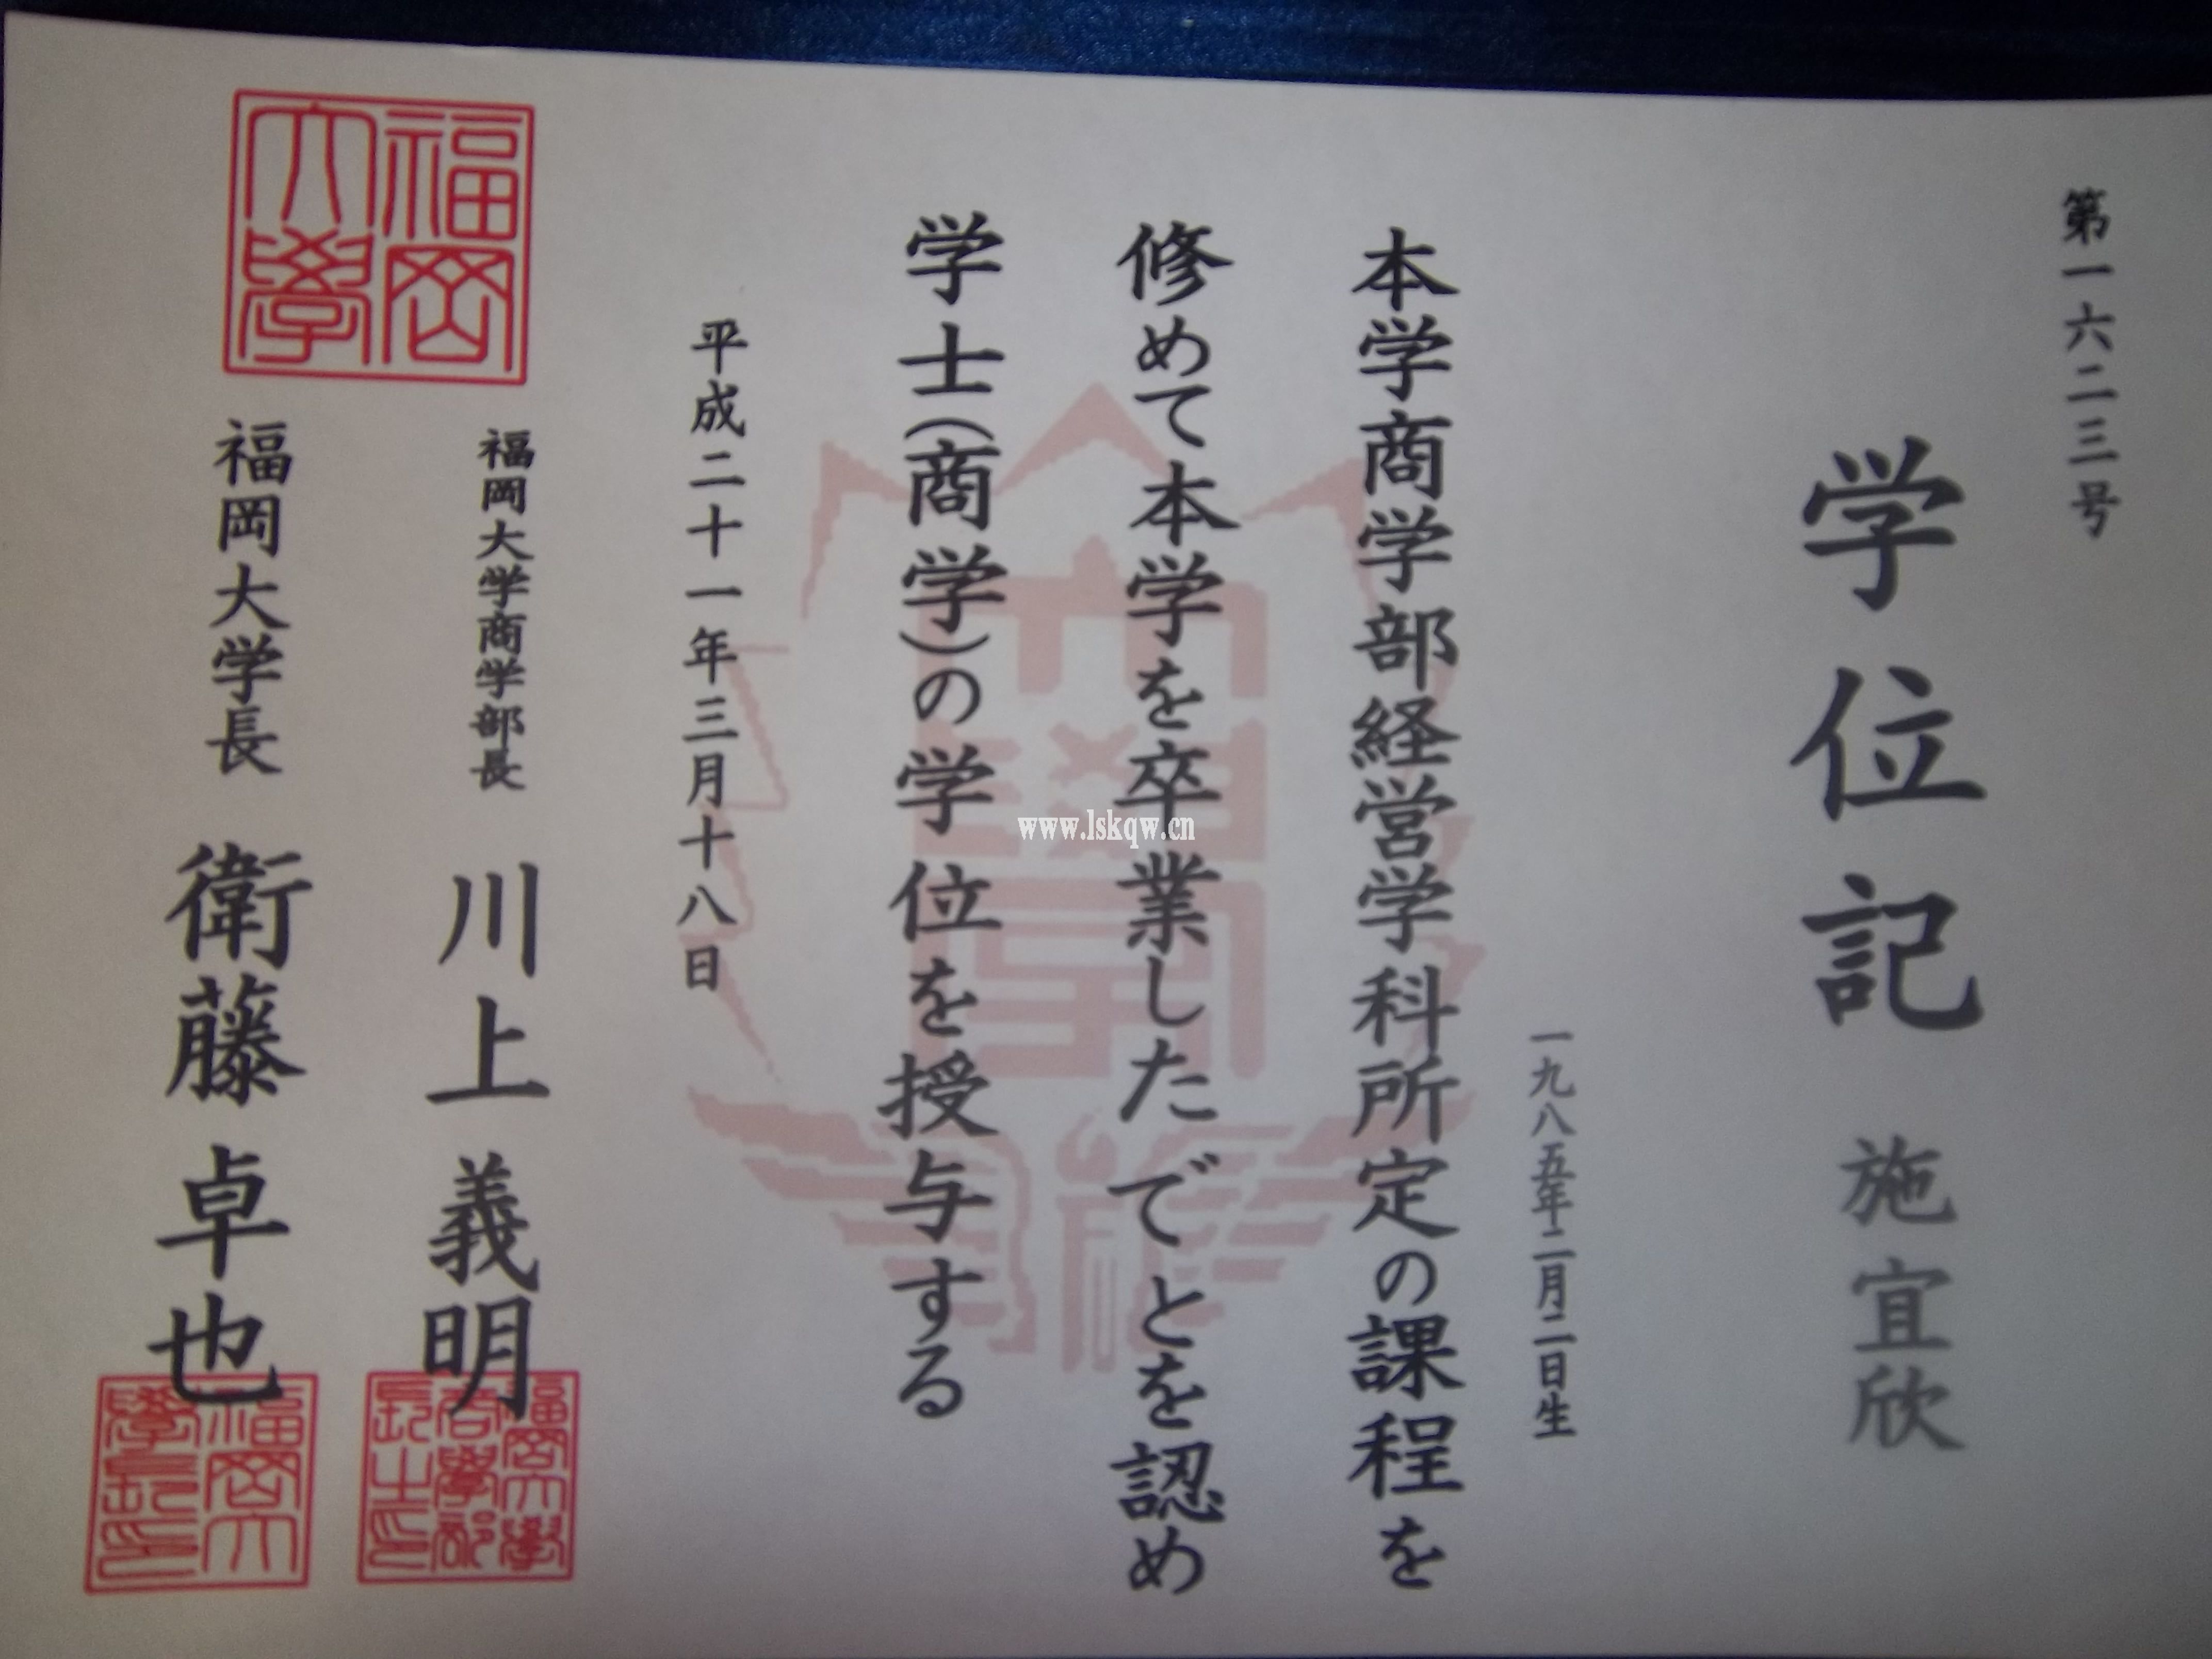 第一六二三号
学位記
施宜欣
一九八五年二月二日生
本学商学部経営学科所定の課程を
修めて本学を卒業したでとを認め
学士(商学)の学位を授与する
平成二十一年三月十八日
福岡大学商学部長 川上義明
福岡大学長 衛藤卓也
福岡大學
福岡大學商學部長之印
福岡大學長印
www.lskqw.cn